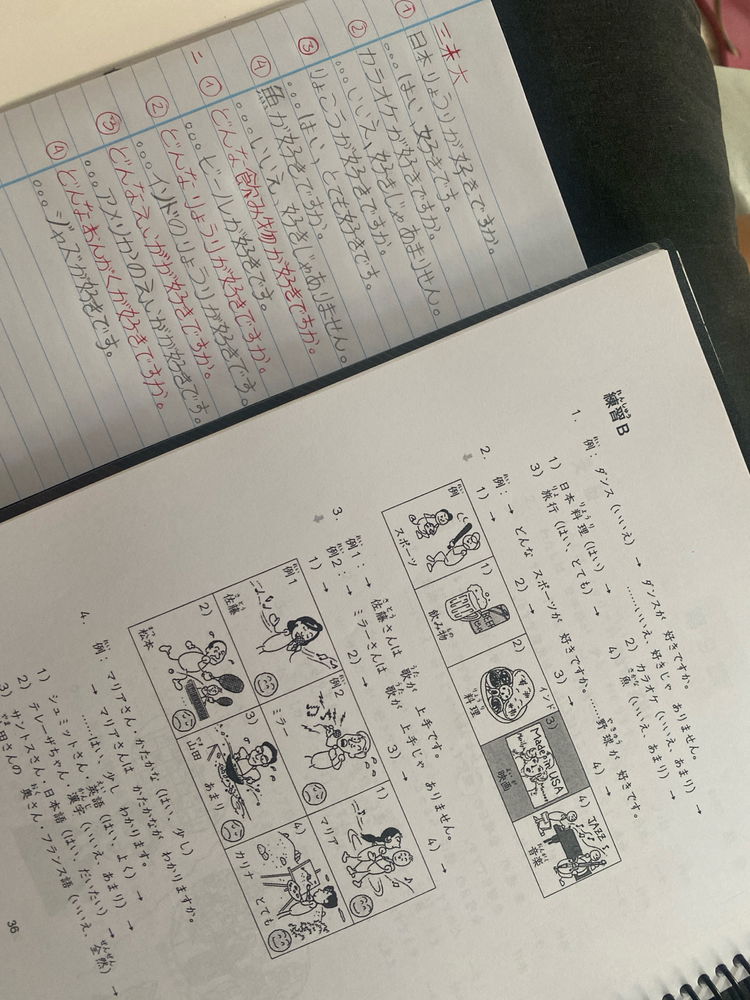 ① 日本りょうりが好きですか。
。。。はい、好きです。
② カラオケが好きですか。
。。。いいえ、好きじゃあまりせん。
③ りょこうが好きですか。
。。。はい、とても好きです。
④ 魚が好きですか。
。。。いいえ、好きじゃありません。
二 ① どんな飲み物が好きですか。
。。。ビールが好きです。
② どんなりょうりが好きですか。
。。。インドのりょうりが好きです。
③ どんなえいがが好きですか。
。。。アメリカのえいがが好きです。
④ どんなおんがくが好きですか。
。。。ジャズが好きです。
練習B
1. 例：ダンス（いいえ） → ダンスが 好きですか。
……いいえ、好きじゃ ありません。
1) 日本料理（はい） → 2) カラオケ（いいえ、あまり） →
3) 旅行（はい、とても） → 4) 魚（いいえ、あまり） →
2. 例：→ どんな スポーツが 好きですか。……野球が 好きです。
1) → 2) → 3) → 4) →
例 スポーツ
1) BEER 飲み物
2) インド 料理
3) Made in USA 映画
4) JAZZ 音楽
3. 例1：→ 佐藤さんは 歌が 上手です。
例2：→ ミラーさんは 歌が 上手じゃ ありません。
1) → 2) → 3) → 4) →
例1 佐藤
例2 ミラー
1) マリア
2) 松本
3) 山田 あまり
4) カリナ とても
4. 例：マリアさん・かたかな（はい、少し）
→ マリアさんは かたかなが わかりますか。
……はい、少し わかります。
1) シュミットさん・英語（はい、よく） →
2) テレーザちゃん・漢字（いいえ、あまり） →
3) サントスさん・日本語（はい、だいたい） →
山田さんの 奥さん・フランス語（いいえ、全然） →
36